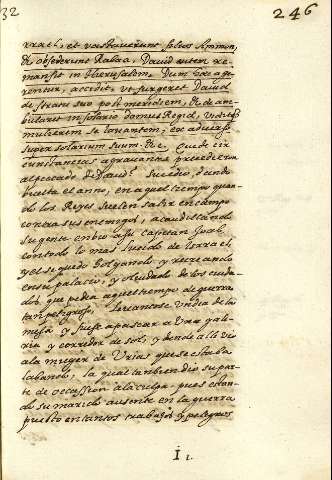 32
246
rrael, et vastaverunt filios Ammon,
et obsederunt Rabba, David autem re-
mansit in Iherusalem. Dum hæc age-
rentur, accidit, vt surgeret David
de stratu suo post meridiem, et de am-
bularet in solario domus Regiæ, viditq3
mulierem se lavantem, ex adverso
super solarium suum. &c. Que de cir
cunstancias agravantes precedieron
al peccado de Dauid? Sucedio, dando
buelta el año, en aquel tiempo quan-
do los Reyes suelen salir en campo
contra sus enemigos, acaudillando
su gente embio a su capitan Joab
con todo lo mas lucido de Isrrael,
y el se quedo holgando y recreando
en su palacio, y oluidado de los cuida-
dos que pedia aquel tiempo de guerra
tan peligroso, Leuantose vn dia de la
mesa y fuese a pasear a vna gale-
ria y corredor de sol, y dende alli vio
a la muger de Vrias que se estaba
labando, la qual tanbien dio su par-
te de occassion a la culpa, pues estan-
do su marido ausente en la guerra
puesto en tantos trabajos y peligros
I 1.